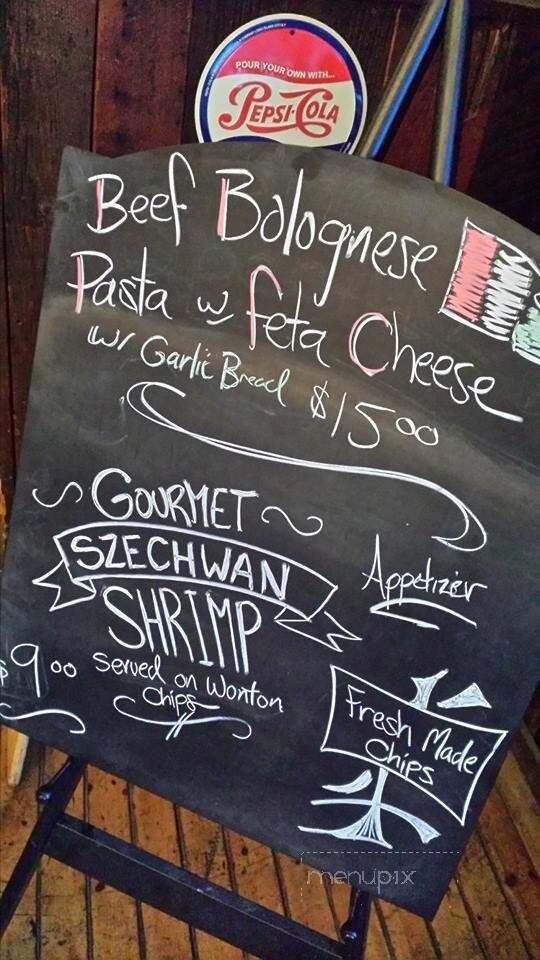 POUR YOUR OWN WITH...
PEPSI-COLA
Beef Bolognese
Pasta w feta Cheese
w/ Garlic Bread $15.00
GOURMET
SZECHWAN
SHRIMP
Appetizer
$9.00 served on Wonton
Chips
Fresh Made
Chips
menupix